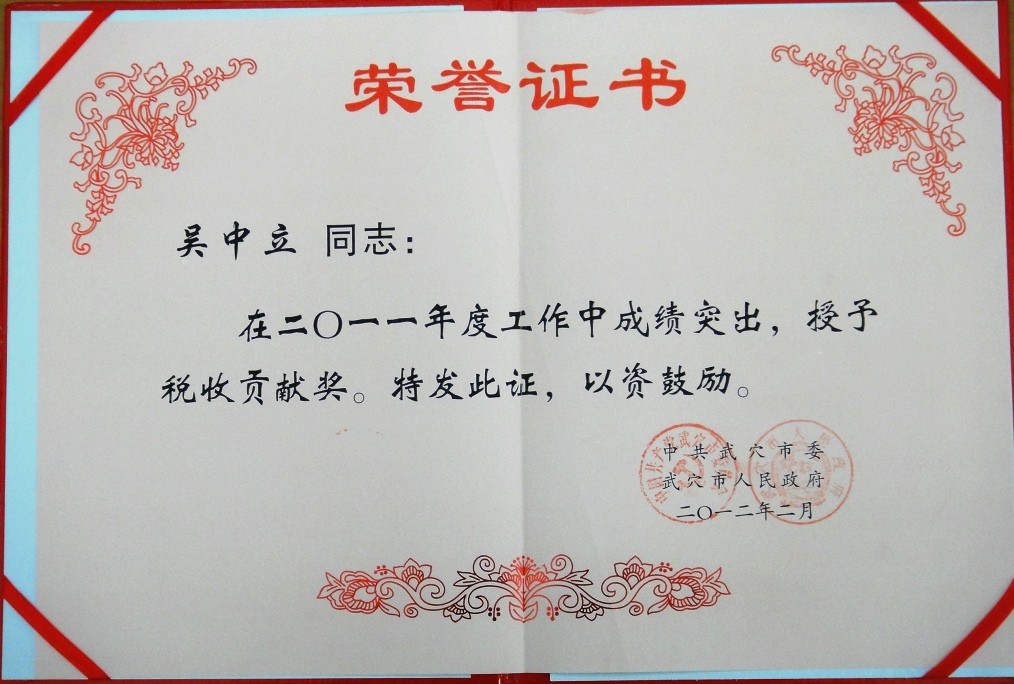 荣誉证书
吴中立 同志：
在二〇一一年度工作中成绩突出，授予
税收贡献奖。特发此证，以资鼓励。
中共武穴市委
武穴市人民政府
二〇一二年二月